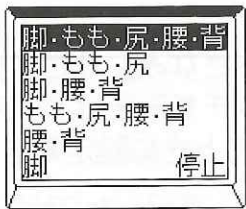 脚･もも･尻･腰･背
脚･もも･尻
脚･腰･背
もも･尻･腰･背
腰･背
脚 停止